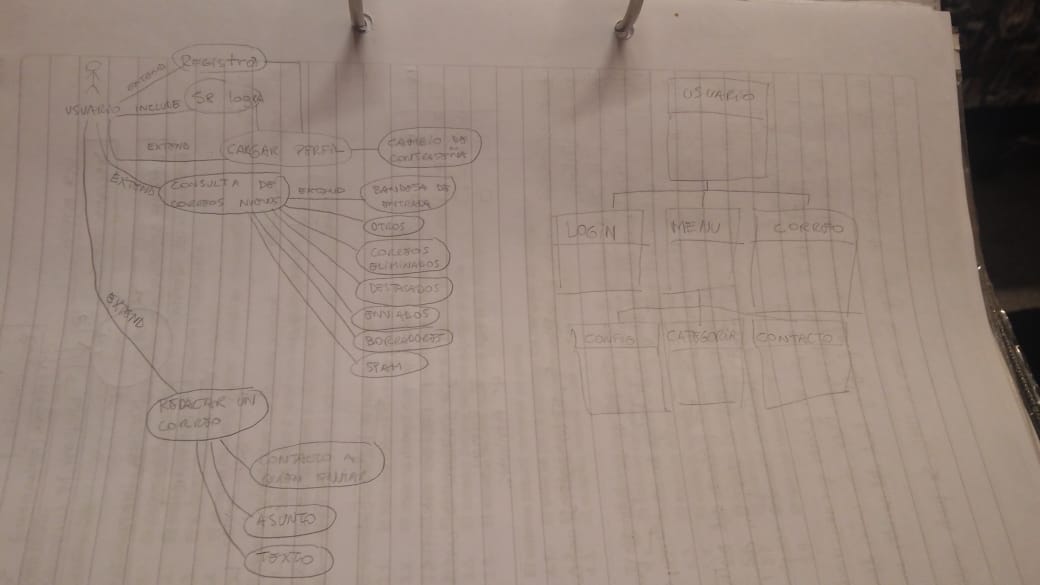 Registro
EXTEND
Se logea
USUARIO
INCLUDE
EXTEND
CARGAR PERFIL
CAMBIO DE
CONTRASEÑA
EXTEND
CONSULTA DE
CORREOS NUEVOS
EXTEND
BANDEJA DE
ENTRADA
OTROS
CORREOS
ELIMINADOS
DESTACADOS
ENVIADOS
BORRADORES
SPAM
EXTEND
REDACTAR UN
CORREO
CONTACTO A
QUIEN ENVIAR
ASUNTO
TEXTO
USUARIO
LOGIN
MENU
CORREO
CONFIG
CATEGORIA
CONTACTO